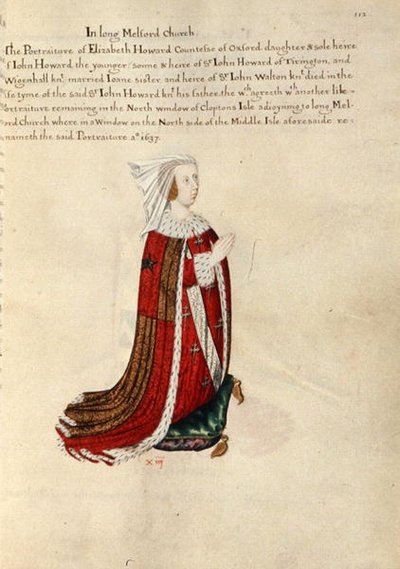 112
In long Melford Church
The Portraiture of Elizabeth Howard Countesse of Oxford daughter & sole heire
of Iohn Howard the younger, sonne & heire of Sr Iohn Howard of Tirington, and
Wigenhall knt. married Ioane sister and heire of Sr Iohn Walton knt died in the
life tyme of the said Sr Iohn Howard knt his father. the wch agreeth wth another like
Portraiture remaining in the North window of Cloptons Isle adioyning to long Mel-
ord Church where in a Window on the North side of the Middle Isle aforesaide re-
naineth the said Portraiture ao 1637.